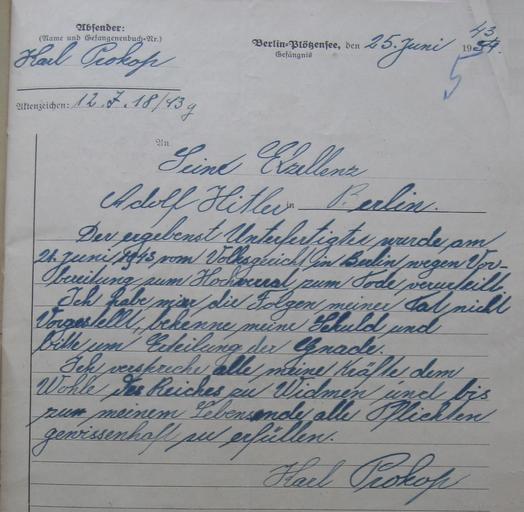 Absender:
(Name und Gefangenenbuch-Nr.)
Karl Prokop
Berlin-Plötzensee, den 25. Juni 1943
Gefängnis
5
Aktenzeichen: 12. J. 18/43 g
An
Seine Exzellenz
Adolf Hitler in Berlin.
Der ergebenst Unterfertigte, wurde am
21. Juni 1943 vom Volksgericht in Berlin wegen Vor-
bereitung zum Hochverrat zum Tode verurteilt.
Ich habe mir die Folgen meiner Tat nicht
Vorgestellt, bekenne meine Schuld und
bitte um Erteilung der Gnade.
Ich verspreche alle meine Kräfte dem
Wohle des Reiches zu Widmen und bis
zum meinem Lebensende alle Pflichten
gewissenhaft zu erfüllen.
Karl Prokop